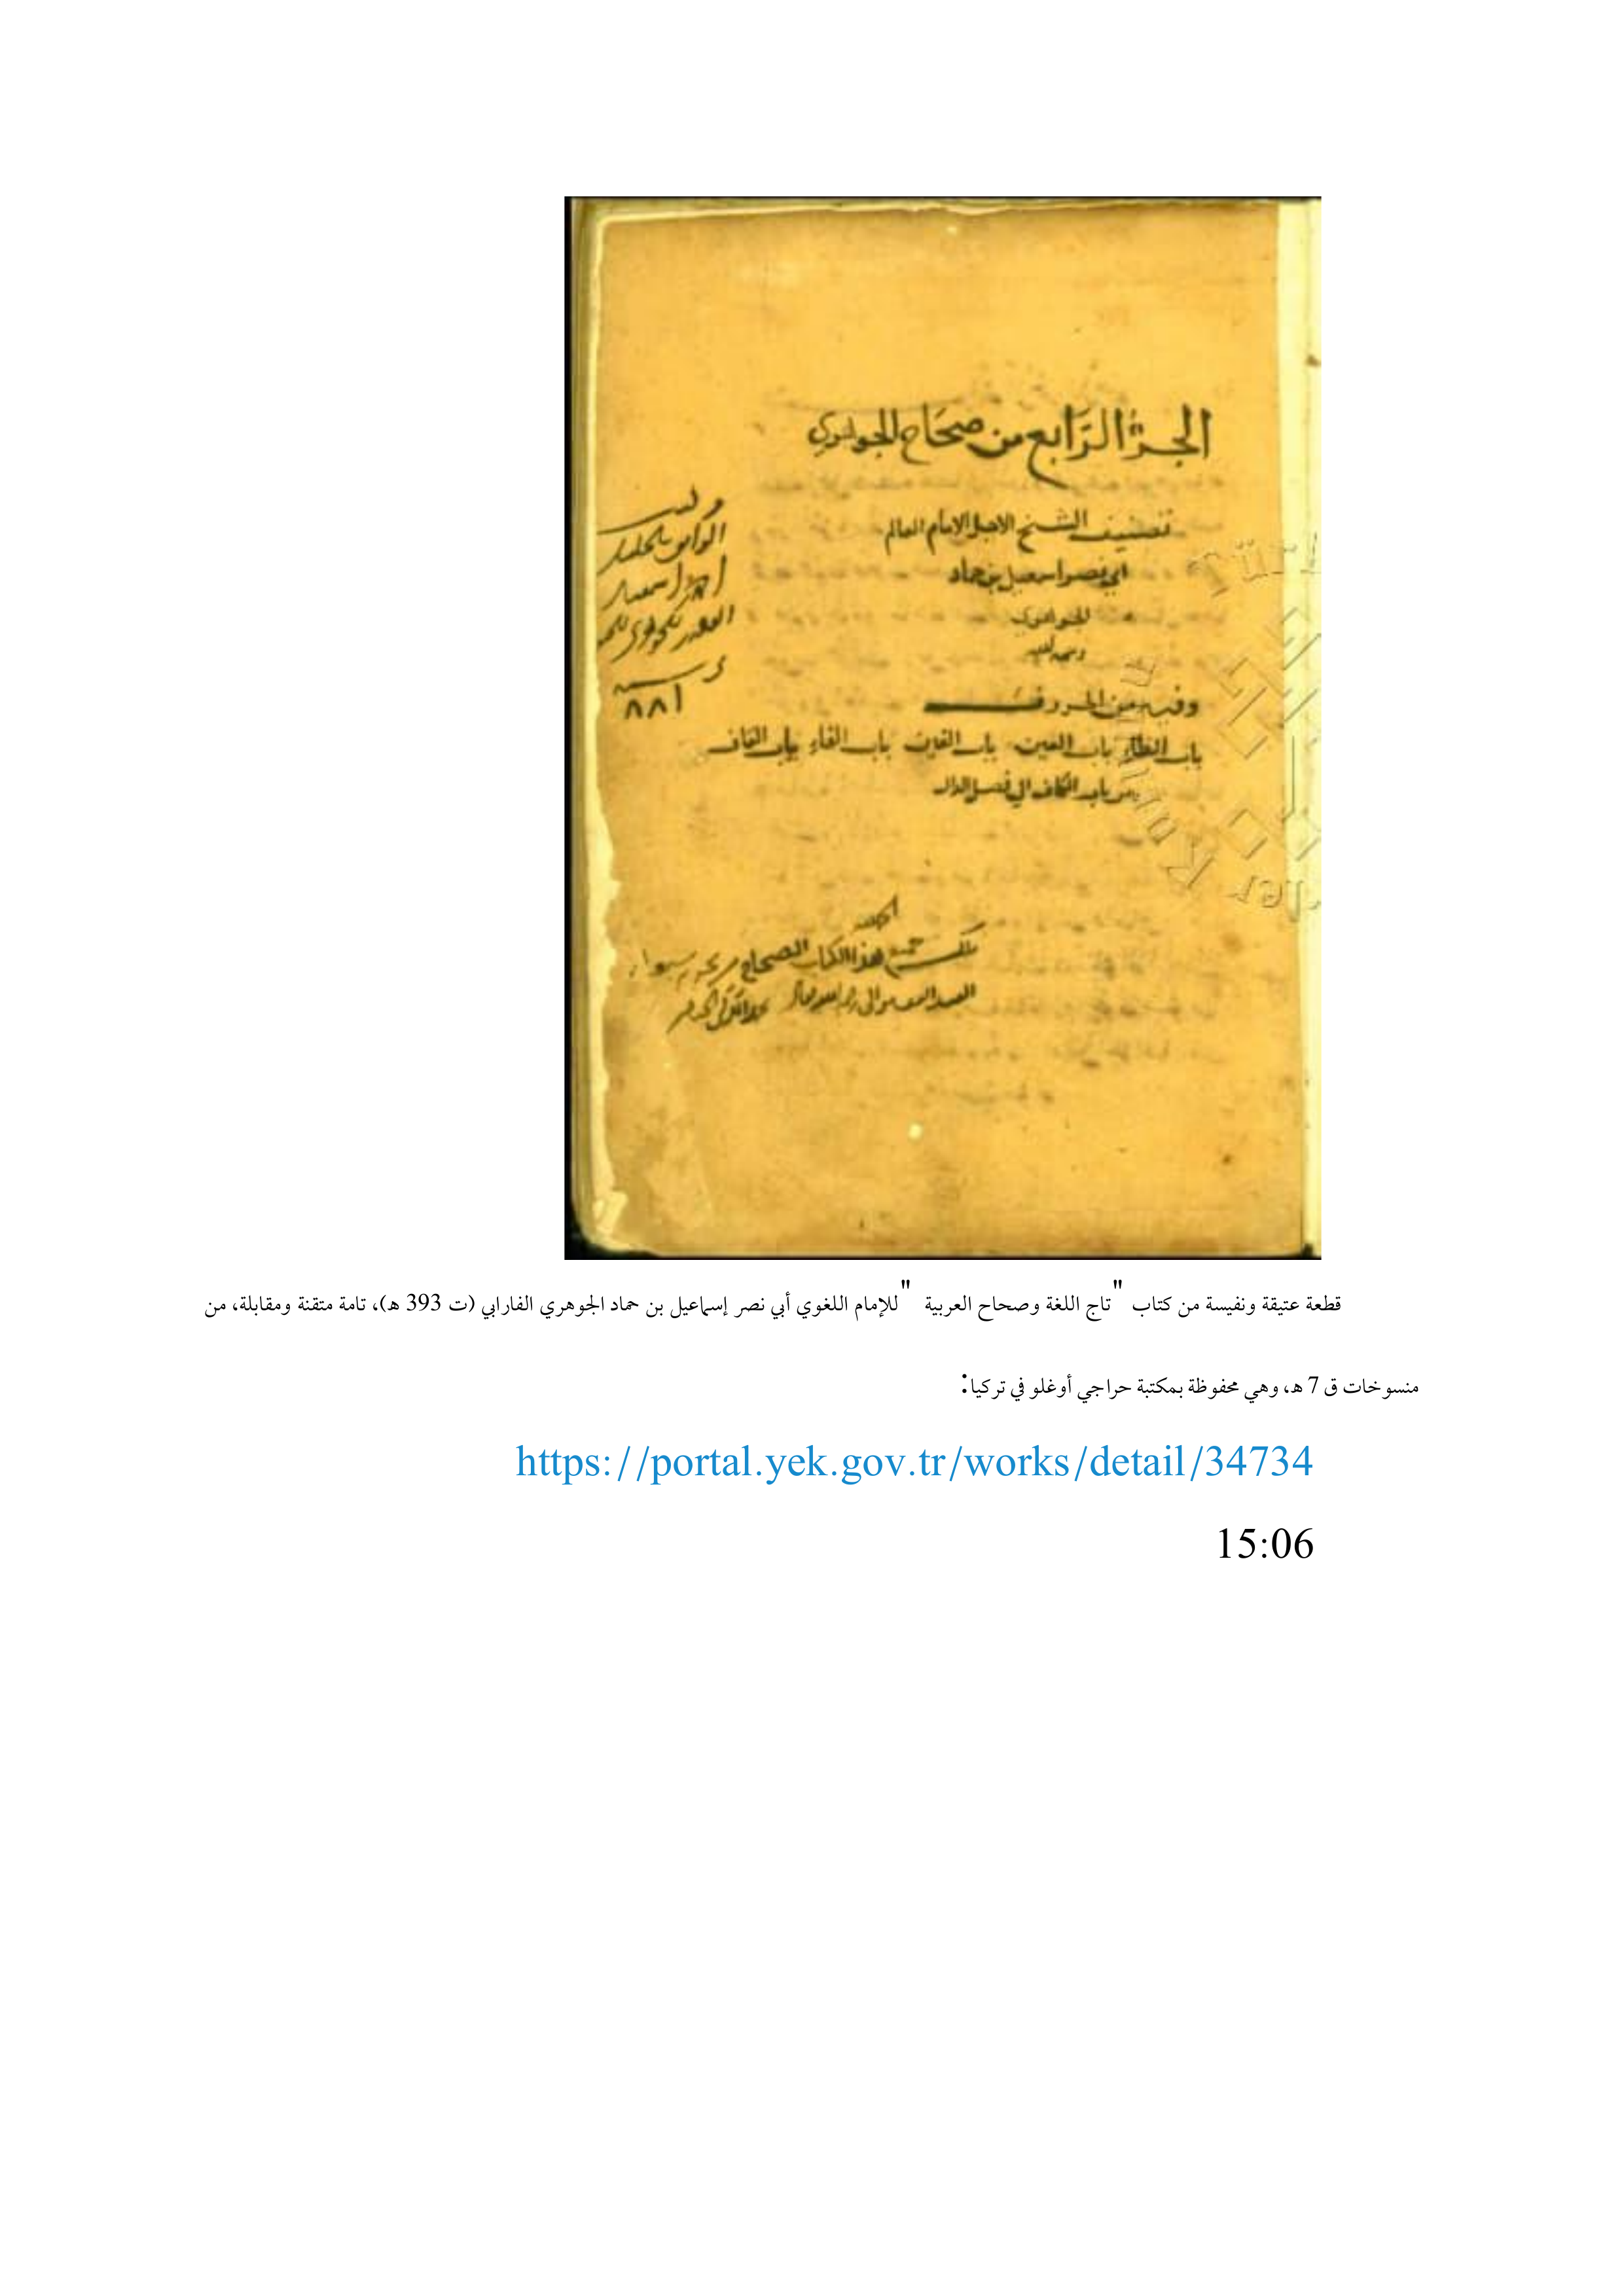 الجزء الرابع من صحاح الجوهري
تصنيف الشيخ الاجل الامام العالم
ابي نصر اسمعيل بن حماد
الجوهري
رحمه الله
وفيه من الحروف
باب الظاء باب العين باب الغين باب الفاء باب القاف
من باب الكاف الى فصل الدال
٨٨١
ملك هذا الكتاب الصحاح
قطعة عتيقة ونفيسة من كتاب "تاج اللغة وصحاح العربية" للإمام اللغوي أبي نصر إسماعيل بن حماد الجوهري الفارابي (ت 393 هـ)، تامة متقنة ومقابلة، من
منسوخات ق 7 هـ، وهي محفوظة بمكتبة حراجي أوغلو في تركيا:
https://portal.yek.gov.tr/works/detail/34734
15:06